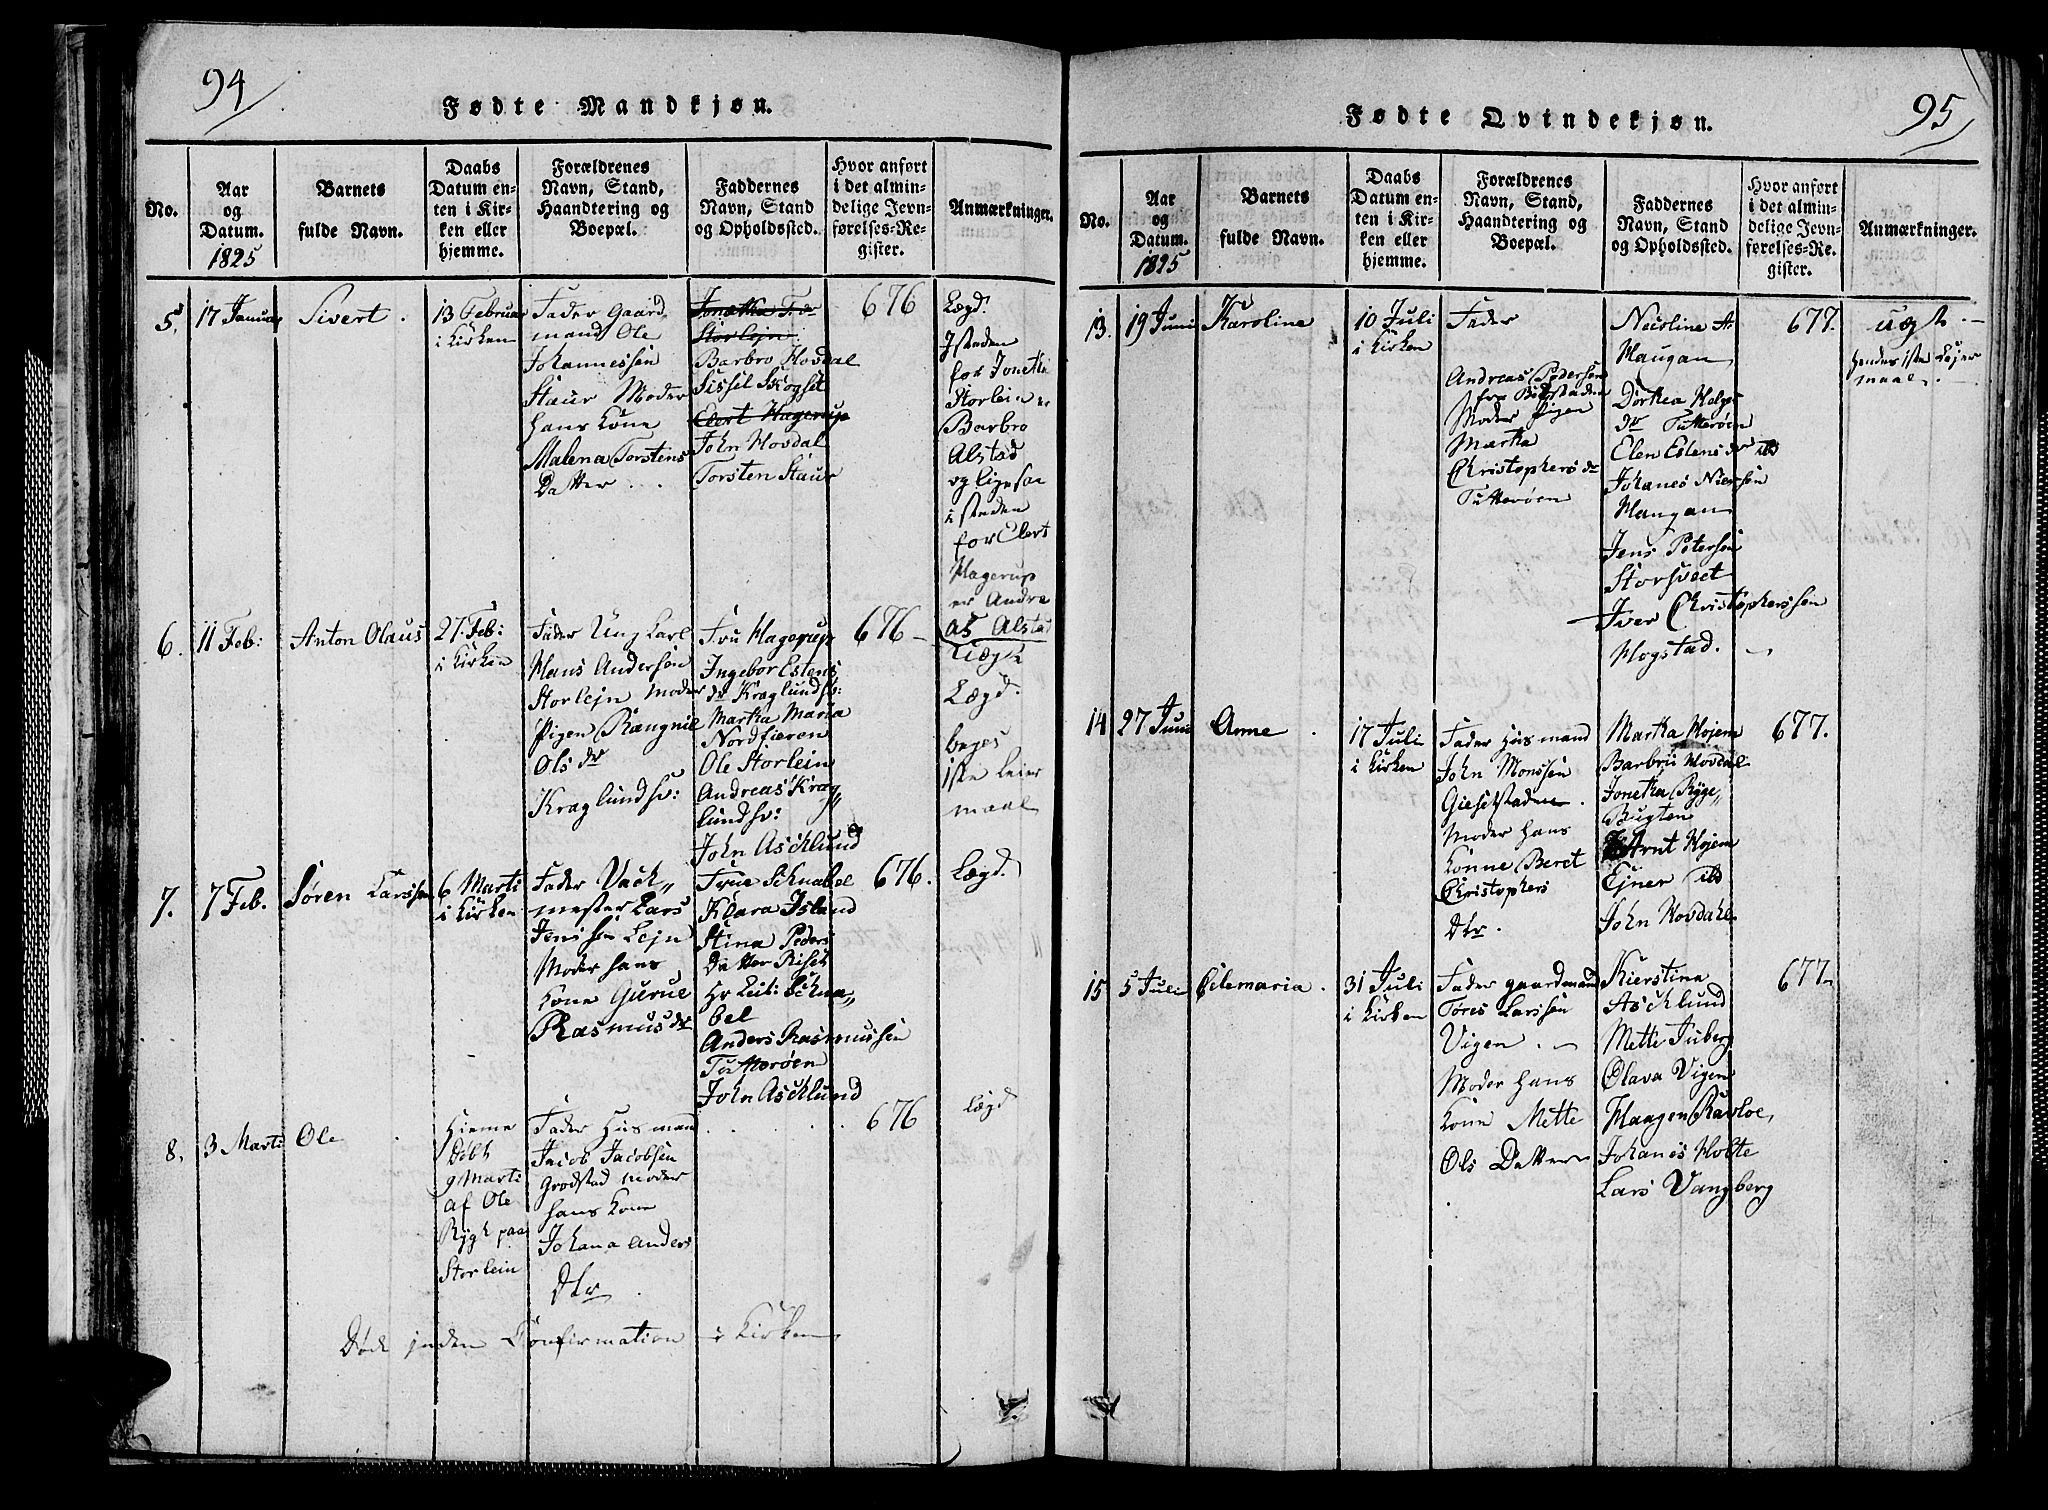 94
Fødte Mandkjøn.
No.
Aar
og
Datum.
1825
Barnets
fulde Navn.
Daabs
Datum en-
ten i Kir-
ken eller
hjemme.
Forældrenes
Navn, Stand,
Haandtering og
Boepæl.
Faddernes
Navn, Stand
og Opholdssted.
Hvor anført
i det almin-
delige Jevn-
førelses-Re-
gister.
Anmærkninger.
5.
17 Januar
Sivert.
13 Februar
i Kirken
Fader Gaard
mand Ole
Johannessen
Staur Moder
hans Kone
Malena Torstens
Datter
Jonetka F. dr
Storlejn
Barbro Hovdal
Sissel Skogset
Elert Hagerup
John Hovdal
Torsten Staur
676
Lægd.
Jstæden
for Jonetka
Storlein er
Barbro
Alstad
og ligesaa
i stæden
for Elert
Hagerup
er Andre
as Alstad
6.
11 Feb:
Anton Olaus
27 Feb:
i Kirken
Fader Ung Karl
Hans Andersen
Storlejn Moder
Pigen Rangnil
Ols dr
Kraglundsv:
Fru Hagerup
Ingebor Estens
dr Kraglundsv:
Marka Maria
Nordfieren
Ole Storlein
Andreas Krag„
lundsv:
John Ascklund
676
Uægte
Lægd.
beges
iste Leier
maal
7.
7 Feb.
Søren Larssen
6 Marti
i Kirken
Fader Vack„
mester Lars
Jens sen Lejn
Moder hans
Kone Gurue
Rasmus dr
Frue Schnabel
Klara Island
Stina Peders
Datter Riset
Hr Leit: Schna„
bel
Anders Rasmussen
Tutterøen
John Ascklund
676.
Lægd.
8.
3 Marti
Ole
Hieme
Døbt
9 Marti
af Ole
Rygh paa
Storlein
Fader Hus man
Jacob Jacobsen
Grodstad Moder
hans Kone
Johana Anders
Dtr
676
Lægd
Døbt jnden Confirmation i Kirken
95
Fødte Qvindekjøn.
No.
Aar
og
Datum.
1825
Barnets
fulde Navn.
Daabs
Datum en-
ten i Kir-
ken eller
hjemme.
Forældrenes
Navn, Stand,
Haandtering og
Boepæl.
Faddernes
Navn, Stand
og Opholdssted.
Hvor anført
i det almin-
delige Jevn-
førelses-Re-
gister.
Anmærkninger.
13.
19 Juni
Karoline
10 Juli
i Kirken
Fader
Andreas Pedersen
fra Biditstaden
Moder Pigen
Marka
Christophers dr
Tutterøen
Nicoline A:
Haugan
Dorkea Helge
dr Tutterøen
Elen Estens dr ibd
Johanes Nielssen
Haugan
Jens Petersen
Storsveet
Iver Christopherssen
Hogstad.
677.
uægte
hendes iste Lejer
maal.
14
27 Juni
Anne
17 Juli
i Kirken
Fader Husmand
John Monssen
Gieselstaden.
Moder hans
Konne Beret
Christophers
Dtr.
Marka Højem
Barbru Hovdal
Jonetka Ryge„
Bugten
Arnt Højem
Ejner ibd
John Hovdahl
677.
15
5 Juli
Oilemaria.
31 Juli
i Kirken
Fader gaardmand
Tøres Larssen
Vigen
Moder hans
Kone Mette
Ols Datter
Kierstina
Ascklund
Mette Juberg
Olava Vigen
Haagen Ravloe,
Johanes Holte
Lars Vangberg
677